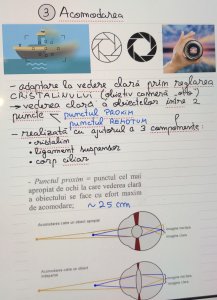 3 Acomodarea
- adaptare la vedere clară prin reglarea
CRISTALINULUI (obiectiv cameră foto)
→ vederea clară a obiectelor între 2
puncte < punctul PROXIM
punctul REMOTUM
- realizată cu ajutorul a 3 componente:
• cristalin
• ligament suspensor
• corp ciliar
- Punctul proxim = punctul cel mai
apropiat de ochi la care vederea clară
a obiectului se face cu efort maxim
de acomodare; ~ 25 cm
Acomodarea catre un obiect apropiat
imagine neclara
imagine clara
Acomodarea catre un obiect
indepartat
imagine neclara
imagine clara